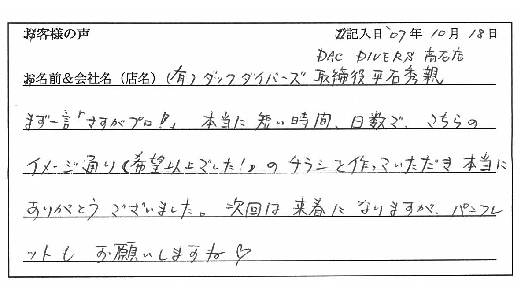 お客様の声 ご記入日 '07年 10月 18日
DAC DIVERS 高石店
お名前&会社名（店名） (有) ダックダイバーズ 取締役 平石秀親
まず一言「さすがプロ!!」 本当に短い時間、日数で、こちらの
イメージ通り《希望以上でした!》のチラシを作っていただき本当に
ありがとうございました。次回は来春になりますが、パンフレ
ットも お願いしますね♡